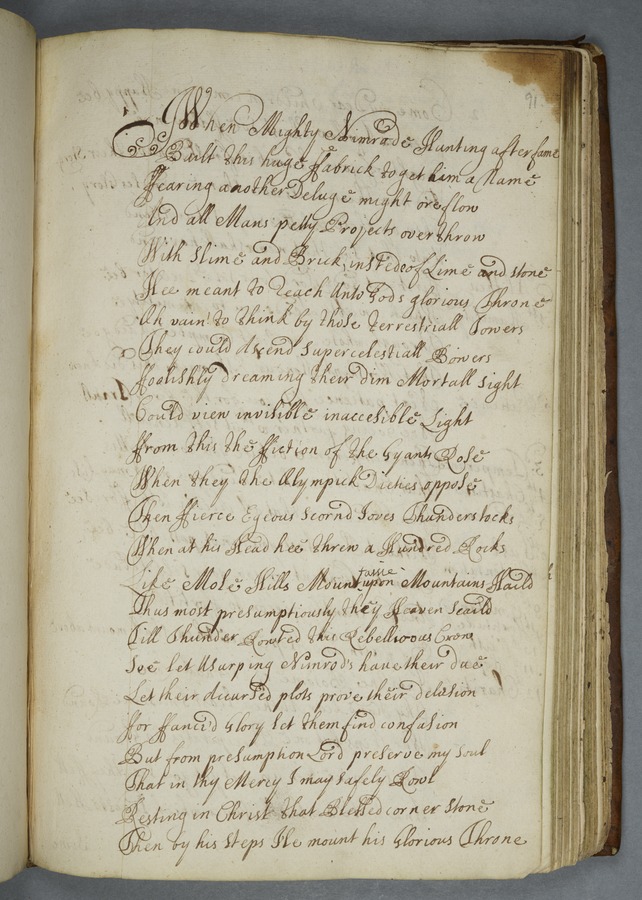 91
When Mighty Nimrode Hunting after fame
Built this huge ffabrick to get him a Name
ffearing another Deluge might oreflow
And all Mans petty Projects overthrow
With Slime and Brick, instede of Lime and stone
Hee meant to reach unto Gods glorious Throne
Oh vain! to think by those terrestriall Towers
They could Asend Supercelestiall Bowers
ffoolishly dreaming their dim Mortall sight
Could view invisible inaccesible Light
ffrom this the ffiction of the Gyants Rose
When they the Olympick Dieties oppose
Then ffierce Egeous scornd Joves Thunderstocks
When at his Head hee threw a Hundred Rocks
Like Mole Hills Mount upon Mountains Haild
Thus most presumptiously they Heaven Scaild
Till Thunder Rowted this Rebellious Crow
Soe let Usurping Nimrods have their due
Let their plots prove their delusion
ffor ffancid Glory let them find confusion
But from presumption Lord preserve my Soul
That in thy Mercy I may safely Rowl
Resting in Christ that Blessed corner stone
Then by his Steps Ile mount his Glorious Throne